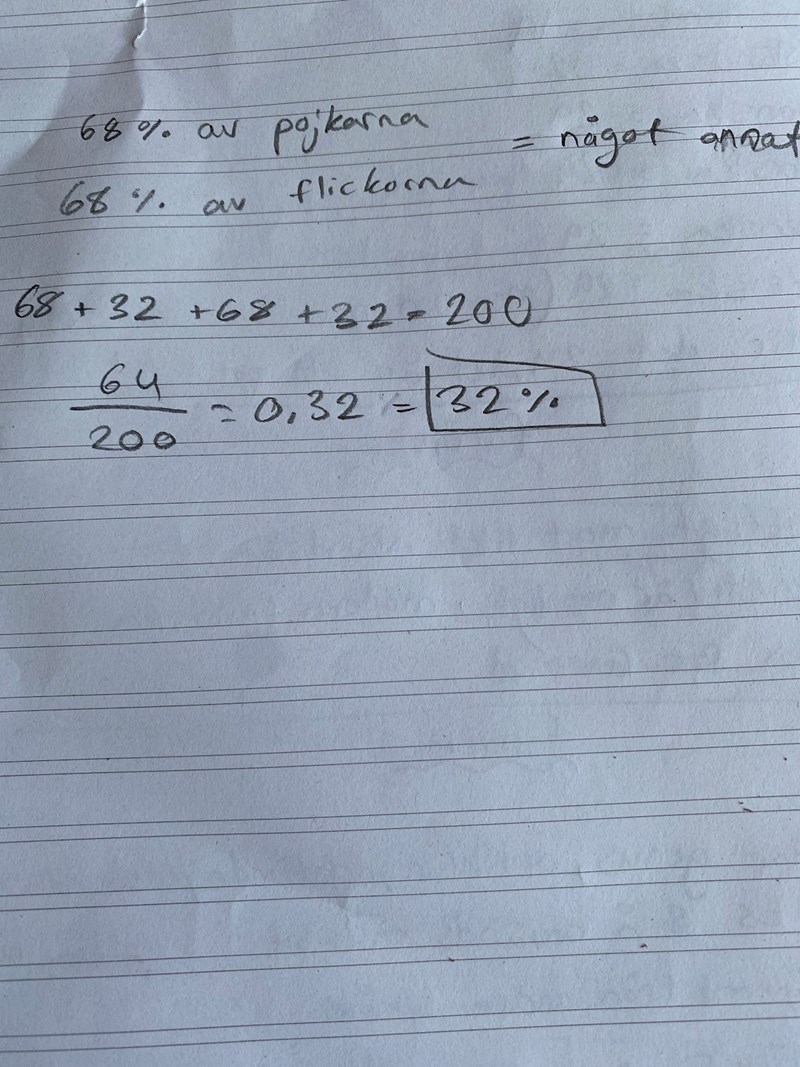 68 % av pojkarna = något annat
68 % av flickorna
68 + 32 + 68 + 32 = 200
64
200 = 0,32 = 32 %